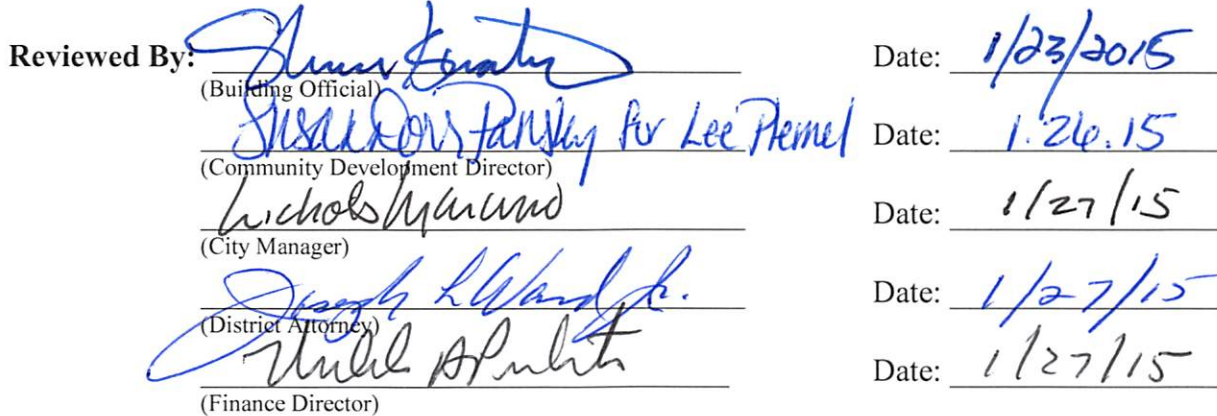 Reviewed By: Date: 1/23/2015
(Building Official)
Susan Dorr Pansky for Lee Plemel Date: 1.26.15
(Community Development Director)
Date: 1/27/15
(City Manager)
Joseph L Ward Jr. Date: 1/27/15
(District Attorney)
Date: 1/27/15
(Finance Director)